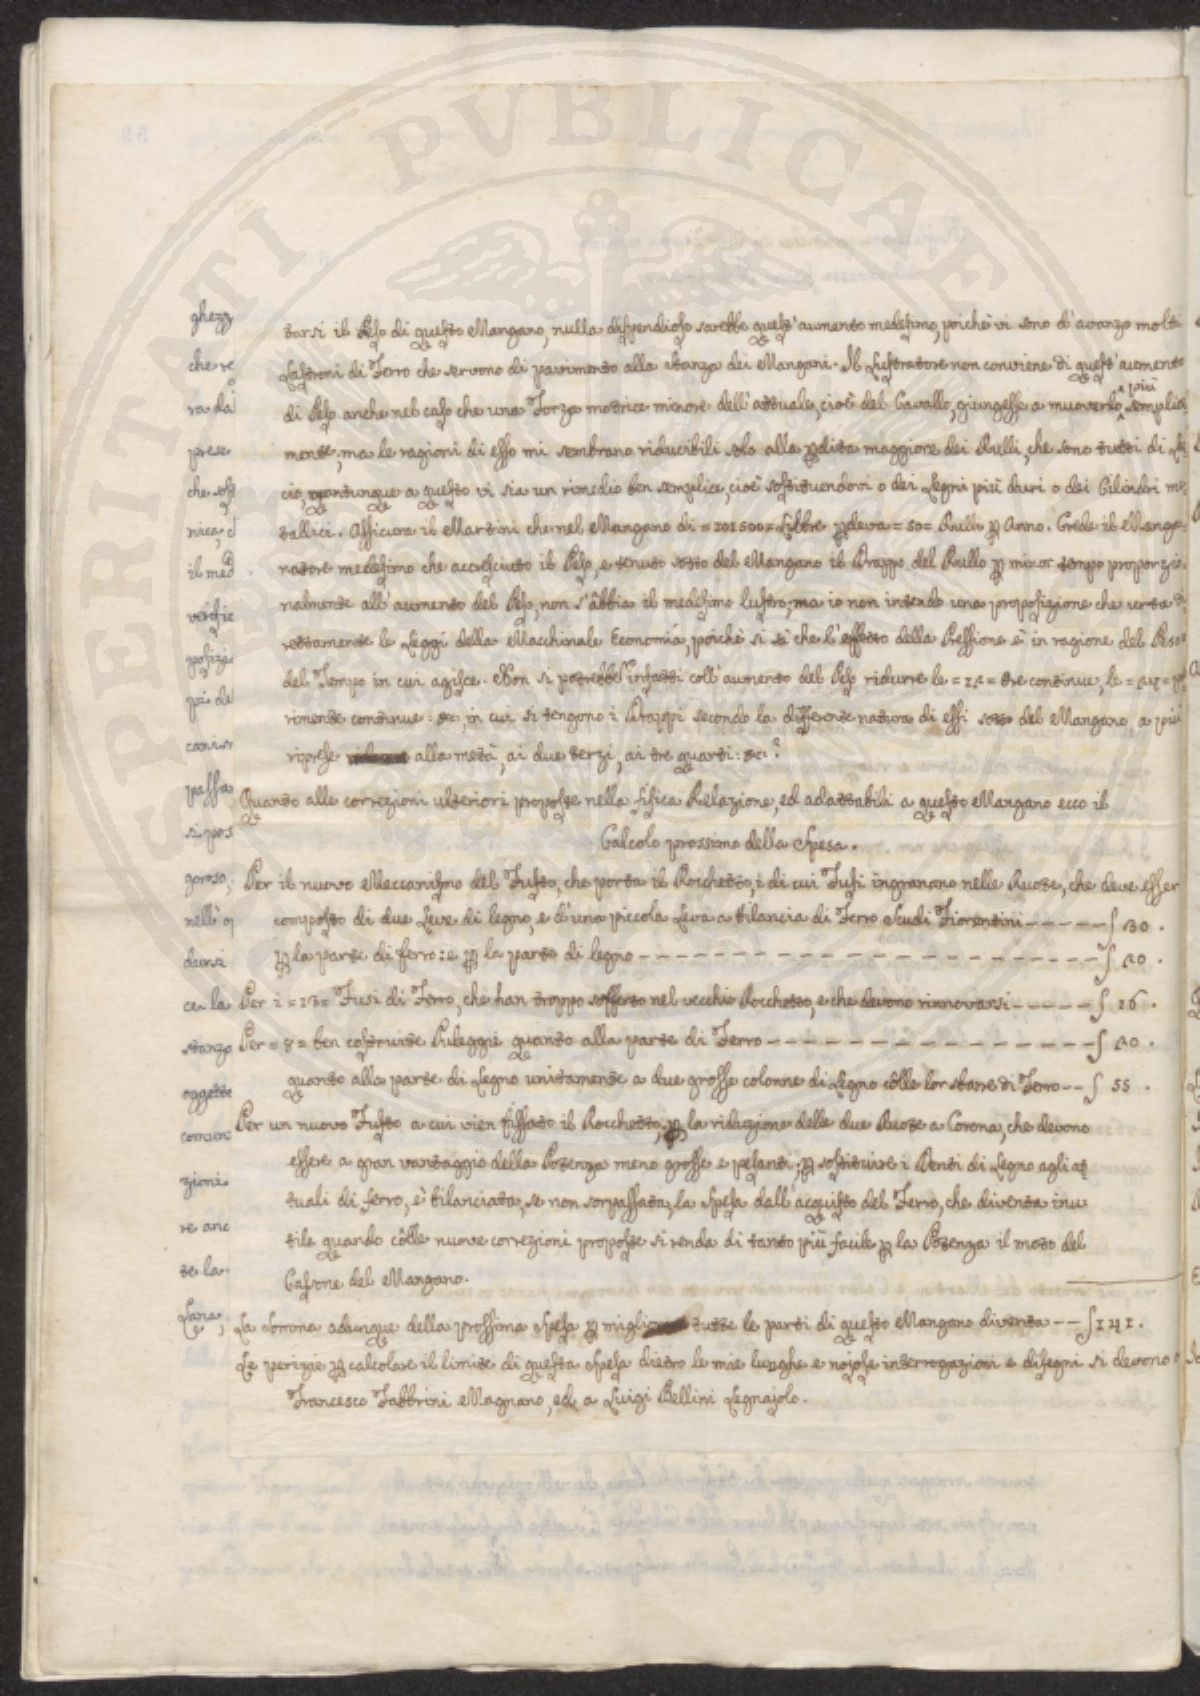 tarsi il Peso di questo Mangano, nulla dispendioso sarebbe quest'aumento medesimo, poichè vi sono d'avanzo molti
Lastroni di Ferro che servono di pavimento alla stanza dei Mangani. Il Lustratore non conviene di quest'aumento
di Peso anche nel caso che una Forza motrice minore dell'attuale, cioè del Cavallo, giungesse a muoverlo più semplice
mente, ma le ragioni di esso mi sembrano riducibili solo alla perdita maggiore dei Rulli, che sono tutti di Lec
cio, quantunque a questo vi sia un rimedio ben semplice, cioè sostituendovi o dei Legni più duri o dei Cilindri me
tallici. Assicura il Martini che nel Mangano di =101500= Libbre perdeva =50= Rulli per Anno. Crede il Manga
natore medesimo che accresciuto il Peso, e tenuto sotto del Mangano il Drappo del Rullo per minor tempo proporzio
nalmente all'aumento del Peso, non s'abbia il medesimo lustro; ma io non intendo una proposizione che urta di
rettamente le Leggi della Macchinale Economia, poichè si sà che l'effetto della Pressione è in ragione del Peso e
del Tempo in cui agisce. Non si potrebbe infatti coll'aumento del Peso ridurre le =12= Ore continue, le =24= pa
rimente continue: &c: in cui si tengono i Drappi secondo la differente natura di essi sotto del Mangano a più
riprese alla metà, ai due terzi, ai tre quarti: &c:?
Quanto alle correzioni ulteriori proposte nella fisica Relazione, ed adattabili a questo Mangano ecco il
Calcolo prossimo della Spesa.
Per il nuovo Meccanismo del Fusto, che porta il Rocchetto, i di cui Fusi ingranano nelle Ruote, che deve esser
composto di due Leve di legno, e d'una piccola Leva a bilancia di Ferro Scudi Fiorentini - - - - - ∫ 30.
per la parte di ferro: e per la parte di legno - - - - - - - - - - - - - - - - - - - - - ∫ 20.
Per i =12= Fusi di Ferro, che han troppo sofferto nel vecchio Rocchetto, e che devono rinnovarsi - - - - - ∫ 16.
Per =8= ben costruite Puleggie quanto alla parte di Ferro - - - - - - - - - - - - - - - - ∫ 20.
quanto alla parte di Legno unitamente a due grosse colonne di Legno còlle lor sbarre di Ferro - - ∫ 55.
Per un nuovo Fusto a cui vien fissato il Rocchetto, per la riduzione delle due Ruote a Corona, che devono
essere a gran vantaggio della Potenza meno grosse e pesanti, per sostituire i Denti di Legno agli at
tuali di ferro, è bilanciata, se non sorpassata, la Spesa dall'acquisto del Ferro, che diventa inu
tile quando còlle nuove correzioni proposte si renda di tanto più facile per la Potenza il moto del
Cassone del Mangano.
La Somma adunque della prossima Spesa per tutte le parti di questo Mangano diventa - - ∫ 141.
Le perizie per calcolare il limite di questa Spesa dietro le mie lunghe e nojose interrogazioni e disegni si devono a
Francesco Fabbrini Magnano, ed a Luigi Bellini Legnajolo.
ghezz
che re
ra da
prese
che sost
nica, c
il med
verse
posizi
pri de
passa
si pos
goroso,
nell'o
dersi
ce la
stanzo
oggetto
comun
zioni
re anc
te la
Lana,
PERITATI PVBLICAE